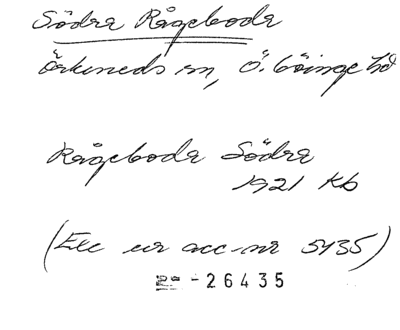 Södra Rågeboda
Örkeneds sn, Ö. Göinge hd
Rågeboda Södra
1921 Kb
(Exc ur acc-nr 5435)
-26435